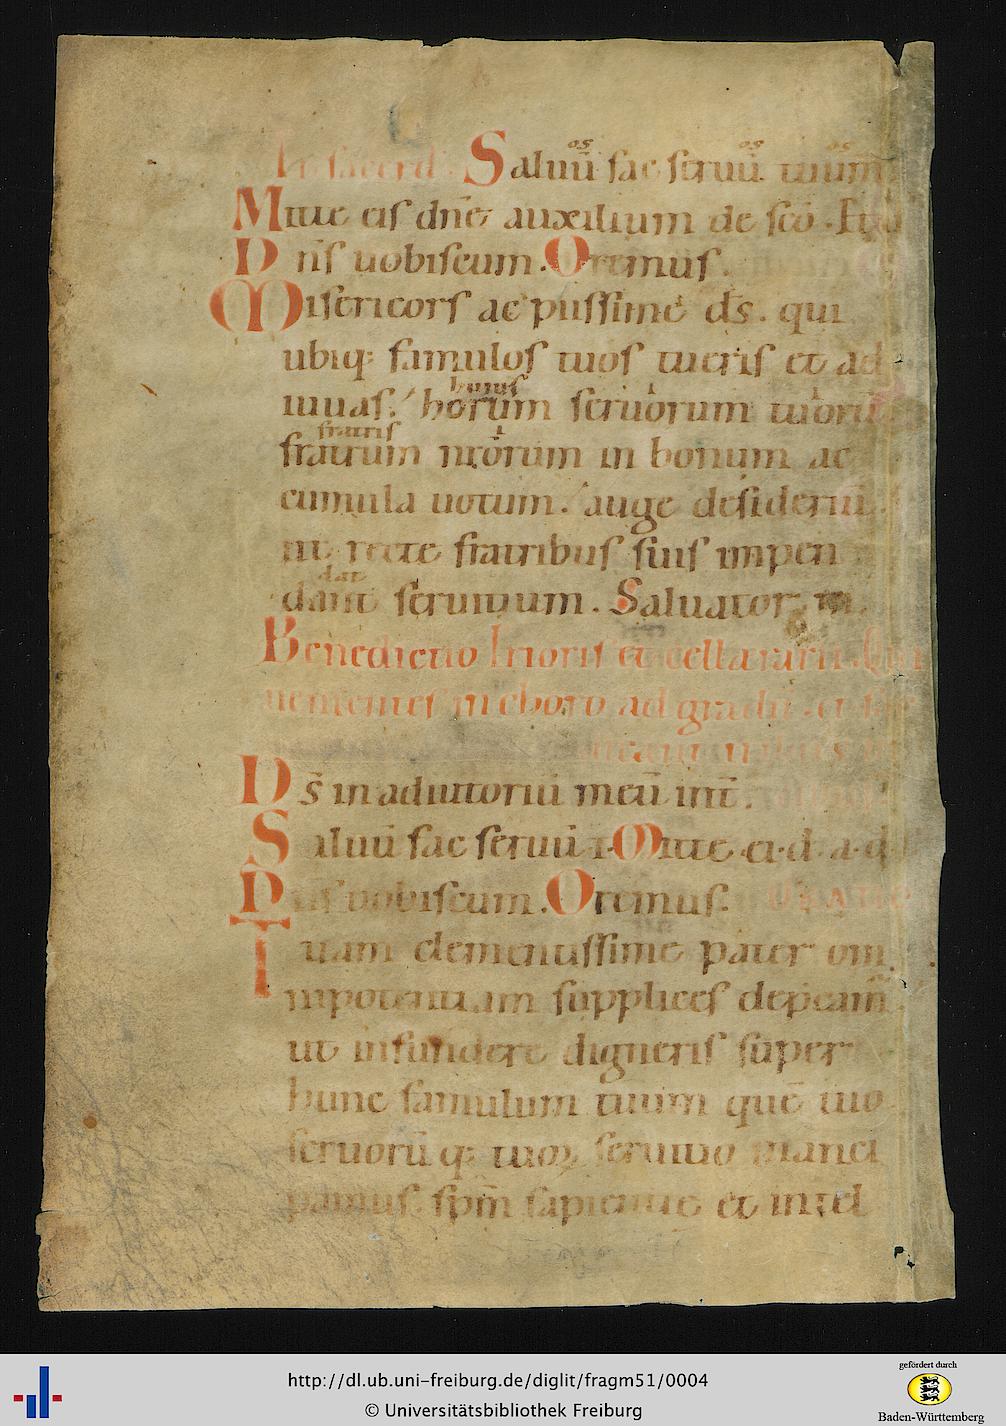 Saluū fac seruū tuum
Mitte eis dn̄e auxilium de sc̄o. Et
Dn̄s uobiscum. Oremus.
Misericors ac piissime d̄s. qui
ubiq; famulos tuos tueris et ad
huius
iuuas. horum seruorum tuorū
fratris
fratrum nr̄orum in bonum ac
cumula uotum. auge desideriū.
ut recte fratribus suis impen
dat
dant seruitium. Saluator m
Benedictio Prioris et cellararii. Qui
uenientes in choro ad gradū. et
D̄s in adiutoriū meū int̄.
Saluū fac seruū t. Mitte ei. d. a. d
Dn̄s uobiscum. Oremus.
ORATIO
Tuam clementissime pater om
nipotentiam supplices dep̄cam̄
ut infundere digneris super
hunc famulum tuum quē tuo
seruorū q; tuoꝝ seruitio manci
pamus. sp̄m sapientie et intel
http://dl.ub.uni-freiburg.de/diglit/fragm51/0004
© Universitätsbibliothek Freiburg
gefördert durch
Baden-Württemberg